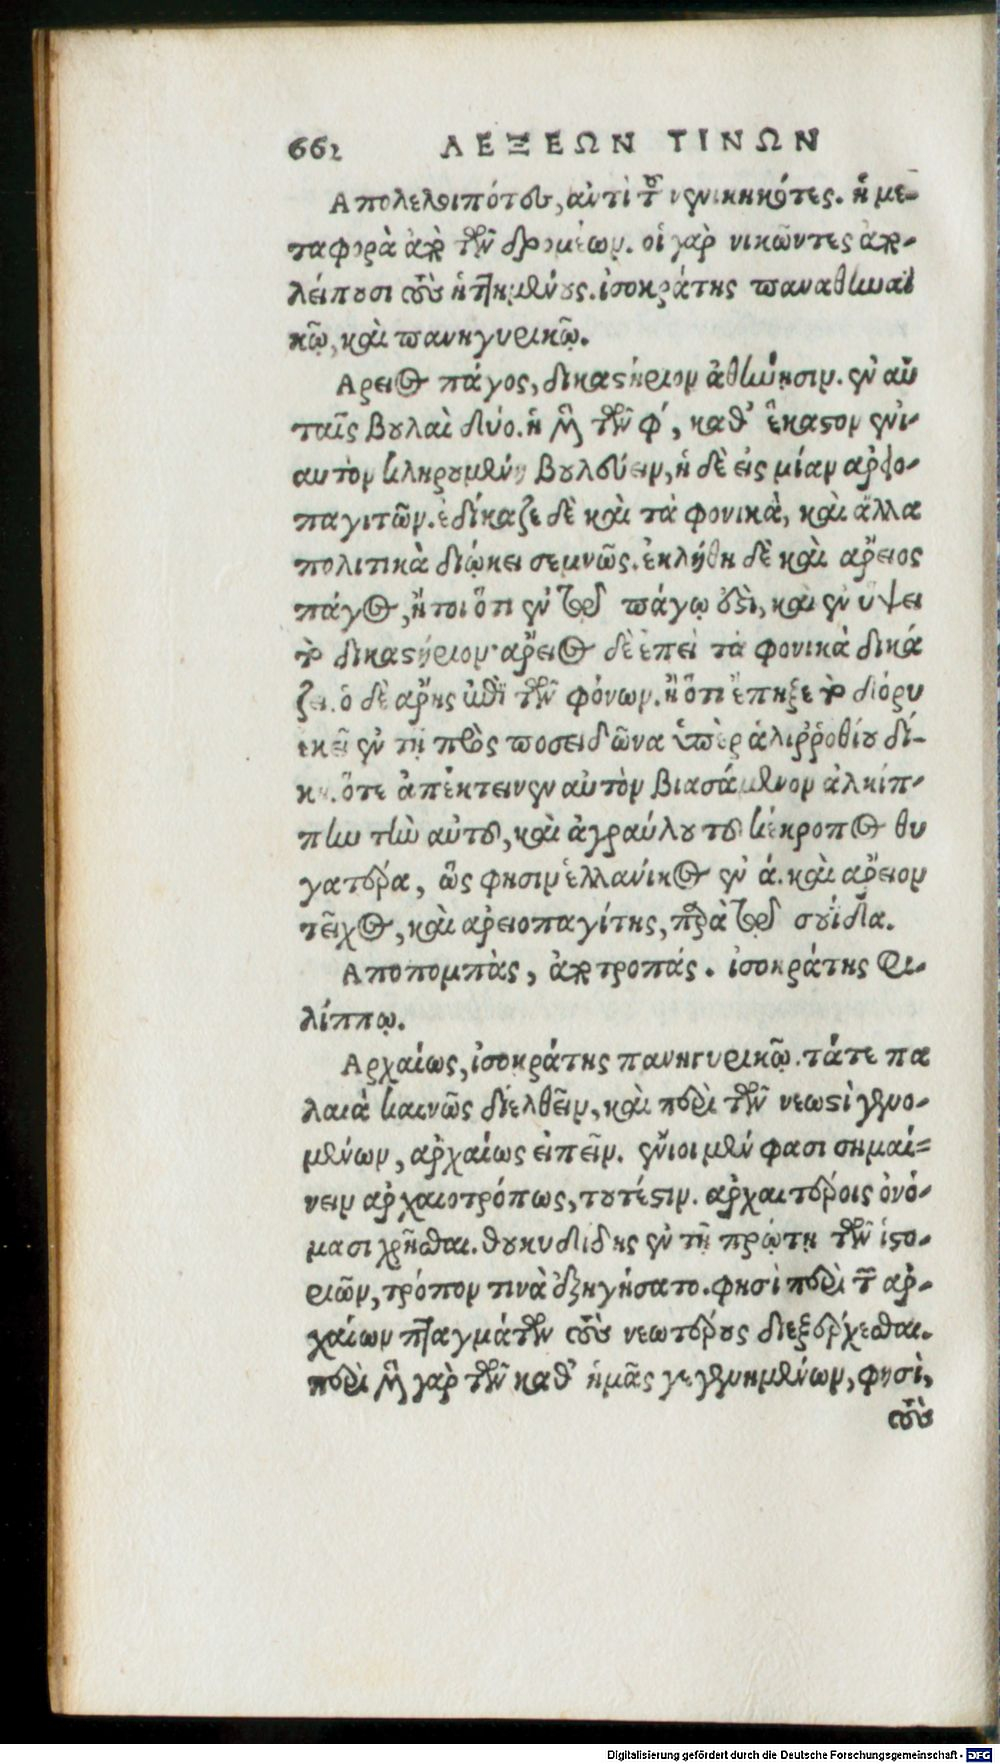 662 ΛΕΞΕΩΝ ΤΙΝΩΝ
Απολελοιπότες, αντὶ τοῦ νενικηκότες. ἡ με-
ταφορὰ ἀπὸ τῶν δρομέων. οἱ γὰρ νικῶντες ἀπο-
λείπουσι τοὺς ἡττημένους. ἰσοκράτης παναθηναϊ
κῷ, καὶ πανηγυρικῷ.
Αρειος πάγος, δικαστήριον ἀθήνησιν. ἐν αὐ
ταῖς βουλαὶ δύο. ἡ μὲν τῶν φ΄, καθ' ἕκαστον ἐνι-
αυτὸν κληρουμένη βουλεύειν, ἡ δὲ εἰς μίαν αρεο-
παγιτῶν. ἐδίκαζε δὲ καὶ τὰ φονικὰ, καὶ ἄλλα
πολιτικὰ διῴκει σεμνῶς. ἐκλήθη δὲ καὶ αρειος
πάγος, ἤτοι ὅτι ἐν τῷ πάγῳ ὀστὶ, καὶ ἐν ὕψει
τὸ δικαστήριον· αρειος δὲ ἐπεὶ τὰ φονικὰ δικά
ζει. ὁ δὲ αρης ἐπὶ τῶν φόνων. ἢ ὅτι ἔπηξε τὸ διόρυ
ἐκεῖ ἐν τῇ πρὸς ποσειδῶνα ὑπὲρ ἁλιρροθίου δί-
κη. ὅτε ἀπέκτεινεν αὐτὸν βιασάμενον ἀλκίπ-
πην τὴν αὐτοῦ, καὶ ἀγραύλου τῆς κέκροπος θυ
γατέρα, ὥς φησιν ἑλλάνικος ἐν ά. καὶ αρειον
τεῖχος, καὶ αρειοπαγίτης, παρὰ τῷ σουίδα.
Αποπομπὰς, ἀποτροπάς. ἰσοκράτης φι-
λίππῳ.
Αρχαίως, ἰσοκράτης πανηγυρικῷ. τά τε πα
λαιὰ καινῶς διελθεῖν, καὶ περὶ τῶν νεωστὶ γενο-
μένων, αρχαίως εἰπεῖν. ἔνιοι μέν φασι σημαί-
νειν αρχαιοτρόπως, τουτέστιν. αρχαιτέροις ὀνό-
μασι χρῆσθαι. θουκυδίδης ἐν τῇ πρώτῃ τῶν ἱστο-
ριῶν, τρόπον τινὰ ἐξηγήσατο. φησὶ περὶ τῶν αρ-
χαίων πραγμάτων τοὺς νεωτέρους διεξέρχεσθαι.
περὶ μὲν γὰρ τῶν καθ' ἡμᾶς γεγενημένων, φησὶ,
τοὺς
Digitalisierung gefördert durch die Deutsche Forschungsgemeinschaft - DFG